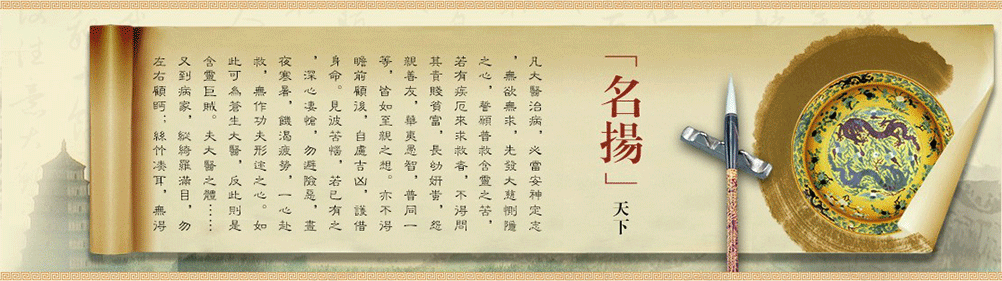 「名揚」天下
凡大醫治病，必當安神定志
，無欲無求，先發大慈惻隱
之心，誓願普救含靈之苦，
若有疾厄來求救者，不得問
其貴賤貧富，長幼妍蚩，怨
親善友，華夷愚智，普同一
等，皆如至親之想。亦不得
瞻前顧後，自慮吉凶，護惜
身命。見彼苦惱，若已有之
，深心淒愴，勿避險惡，晝
夜寒暑，饑渴疲勞，一心赴
救，無作功夫形迹之心。如
此可為蒼生大醫，反此則是
含靈巨賊。夫大醫之體……
又到病家，縱綺羅滿目，勿
左右顧眄；絲竹湊耳，無得